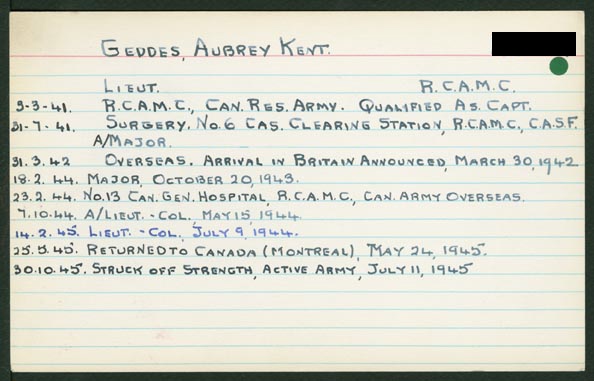 GEDDES, AUBREY KENT.
LIEUT. R.C.A.M.C.
3-3-41. R.C.A.M.C., CAN. RES. ARMY. QUALIFIED AS CAPT.
31-7-41. SURGERY. NO. 6 CAS. CLEARING STATION, R.C.A.M.C., C.A.S.F.
A/MAJOR.
31.3.42 OVERSEAS. ARRIVAL IN BRITAIN ANNOUNCED, MARCH 30, 1942
18.2.44. MAJOR, OCTOBER 20, 1943.
23.2.44. NO. 13 CAN. GEN. HOSPITAL, R.C.A.M.C., CAN. ARMY OVERSEAS.
7.10.44. A/LIEUT.-COL., MAY 15, 1944
14.2.45. LIEUT.-COL., JULY 9, 1944.
25.5.45. RETURNED TO CANADA (MONTREAL), MAY 24, 1945.
30.10.45. STRUCK OFF STRENGTH, ACTIVE ARMY, JULY 11, 1945